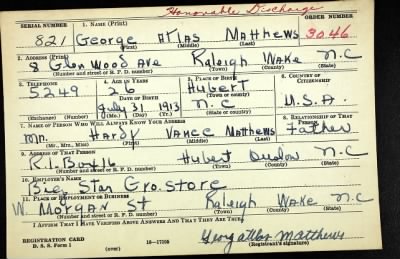 Honorable Discharge
SERIAL NUMBER 1. NAME (Print) ORDER NUMBER
821 George Atlas Matthews 3046
(First) (Middle) (Last)
2. ADDRESS (Print)
8 Glen Wood Ave Raleigh Wake N.C
(Number and street or R. F. D. number) (Town) (County) (State)
3. TELEPHONE 4. AGE IN YEARS 5. PLACE OF BIRTH 6. COUNTRY OF CITIZENSHIP
5249 26 Hubert
DATE OF BIRTH (Town or county)
July 31, 1913 N.C U.S.A.
(Mo.) (Day) (Yr.) (State or country)
7. NAME OF PERSON WHO WILL ALWAYS KNOW YOUR ADDRESS 8. RELATIONSHIP OF THAT PERSON
Mr. Hardy Vance Matthews Father
(Mr., Mrs., Miss) (First) (Middle) (Last)
9. ADDRESS OF THAT PERSON
R.1. Box 16 Hubert Onslow N.C
(Number and street or R. F. D. number) (Town) (County) (State)
10. EMPLOYER'S NAME
Big Star Gro. store
11. PLACE OF EMPLOYMENT OR BUSINESS
W. Morgan St Raleigh Wake N.C
(Number and street or R. F. D. number) (Town) (County) (State)
I AFFIRM THAT I HAVE VERIFIED ABOVE ANSWERS AND THAT THEY ARE TRUE.
REGISTRATION CARD
D. S. S. Form 1 (over) 16—17105 George Atlas Matthews
(Registrant's signature)